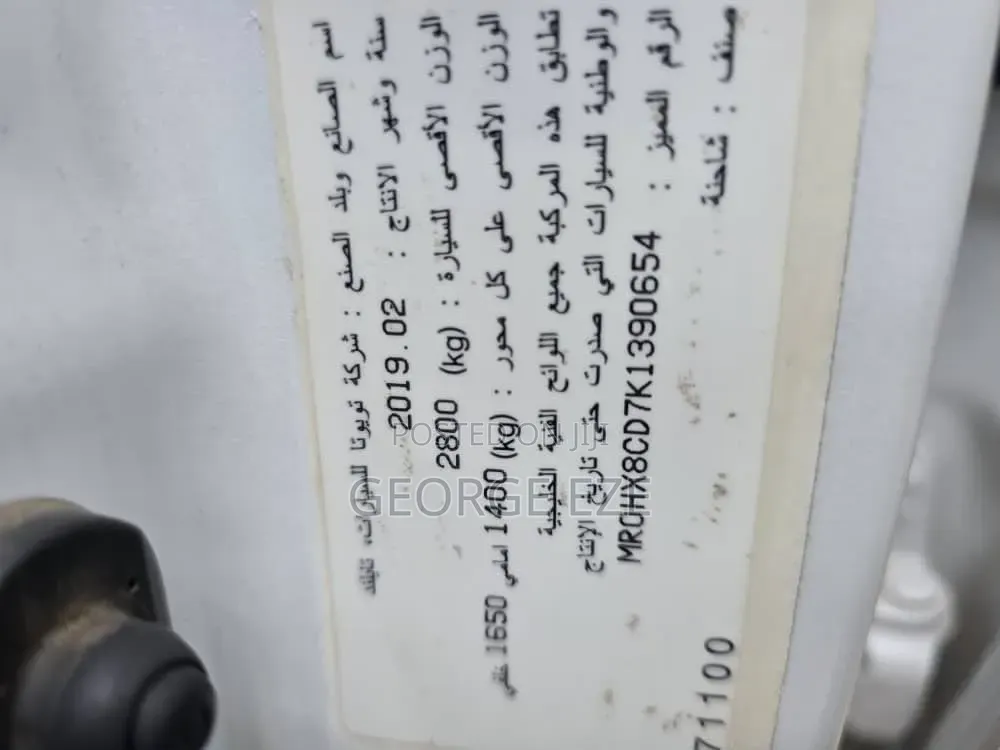 اسم الصانع وبلد الصنع : شركة تويوتا للسيارات، تايلاند
سنة وشهر الانتاج : 2019.02
الوزن الأقصى للسيارة : (kg) 2800
الوزن الأقصى على كل محور : (kg) 1400 امامي 1650 خلفي
تطابق هذه المركبة جميع اللوائح الفنية الخليجية
والوطنية للسيارات التي صدرت حتى تاريخ الإنتاج
الرقم المميز : MR0HX8CD7K1390654
صنف : شاحنة
71100
POSTED ON JIJI
GEORGELEZI